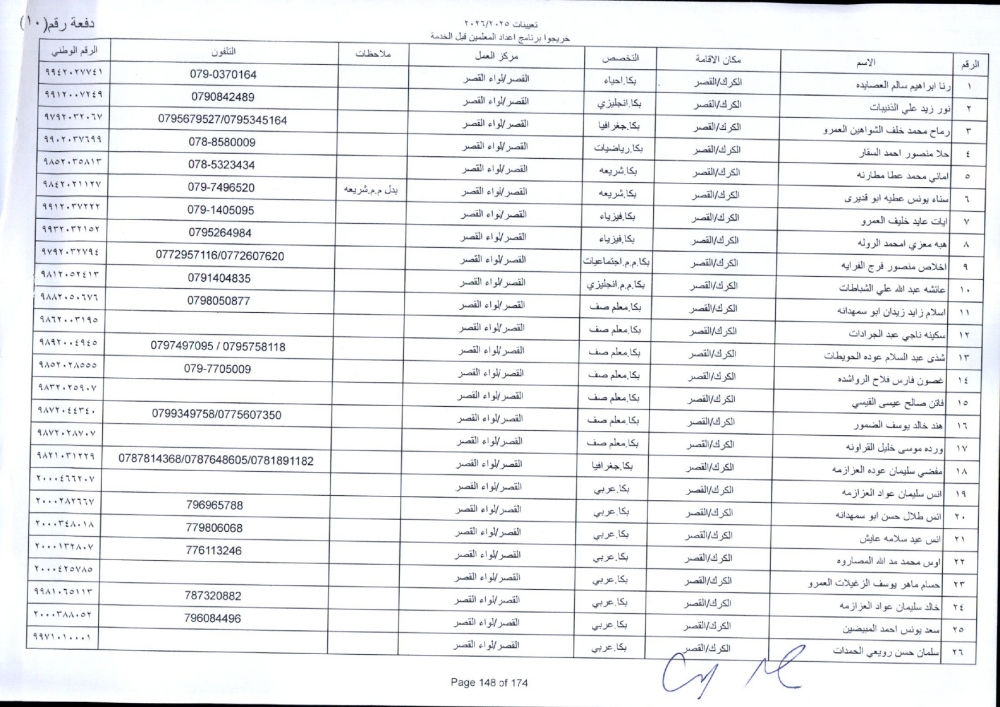 دفعة رقم(١٠)
تعيينات ٢٠٢٦/٢٠٢٥
خريجوا برنامج اعداد المعلمين قبل الخدمة
الرقم الاسم مكان الاقامة التخصص مركز العمل ملاحظات التلفون الرقم الوطني
١ رنا ابراهيم سالم العصايده الكرك/القصر بكا.احياء القصر/لواء القصر 079-0370164 ٩٩٤٢٠٢٧٧٤١
٢ نور زيد علي الذنيبات الكرك/القصر بكا.انجليزي القصر/لواء القصر 0790842489 ٩٩١٢٠٠٧٢٤٩
٣ رماح محمد خلف الشواهين العمرو الكرك/القصر بكا.جغرافيا القصر/لواء القصر 0795679527/0795345164 ٩٧٩٢٠٣٢٠٦٧
٤ حلا منصور احمد السقار الكرك/القصر بكا.رياضيات القصر/لواء القصر 078-8580009 ٩٩٠٢٠٣٧٦٩٩
٥ اماني محمد عطا مطارنه الكرك/القصر بكا.شريعه القصر/لواء القصر 078-5323434 ٩٨٥٢٠٣٥٨١٣
٦ سناء يونس عطيه ابو قديرى الكرك/القصر بكا.شريعه القصر/لواء القصر بدل م.م.شريعه 079-7496520 ٩٨٤٢٠٢١١٢٧
٧ ايات عايد خليف العمرو الكرك/القصر بكا.فيزياء القصر/لواء القصر 079-1405095 ٩٩١٢٠٣٧٢٢٢
٨ هبه معزي امحمد الروله الكرك/القصر بكا.فيزياء القصر/لواء القصر 0795264984 ٩٩٣٢٠٣٢١٥٢
٩ اخلاص منصور فرج الفرايه الكرك/القصر بكا.م.م.اجتماعيات القصر/لواء القصر 0772957116/0772607620 ٩٧٩٢٠٣٢٧٩٤
١٠ عائشه عبد الله علي الشباطات الكرك/القصر بكا.م.م.انجليزي القصر/لواء القصر 0791404835 ٩٨١٢٠٥٢٤١٣
١١ اسلام زايد زيدان ابو سمهدانه الكرك/القصر بكا.معلم صف القصر/لواء القصر 0798050877 ٩٨٨٢٠٥٠٦٧٦
١٢ سكينه ناجي عبد الجرادات الكرك/القصر بكا.معلم صف القصر/لواء القصر ٩٨٦٢٠٠٣١٩٥
١٣ شذى عبد السلام عوده الحويطات الكرك/القصر بكا.معلم صف القصر/لواء القصر 0797497095 / 0795758118 ٩٨٩٢٠٠٤٩٤٥
١٤ غصون فارس فلاح الرواشده الكرك/القصر بكا.معلم صف القصر/لواء القصر 079-7705009 ٩٨٥٢٠٢٨٥٥٥
١٥ فاتن صالح عيسى القيسي الكرك/القصر بكا.معلم صف القصر/لواء القصر ٩٨٣٢٠٢٥٩٠٧
١٦ هند خالد يوسف الضمور الكرك/القصر بكا.معلم صف القصر/لواء القصر 0799349758/0775607350 ٩٨٧٢٠٤٤٣٤٠
١٧ ورده موسى خليل القراونه الكرك/القصر بكا.معلم صف القصر/لواء القصر ٩٨٧٢٠٢٨٧٠٧
١٨ مفضي سليمان عوده العزازمه الكرك/القصر بكا.جغرافيا القصر/لواء القصر 0787814368/0787648605/0781891182 ٩٨٢١٠٣١٢٢٩
١٩ انس سليمان عواد العزازمه الكرك/القصر بكا.عربي القصر/لواء القصر ٢٠٠٠٤٦٦٢٠٧
٢٠ انس طلال حسن ابو سمهدانه الكرك/القصر بكا.عربي القصر/لواء القصر 796965788 ٢٠٠٠٢٨٢٦٦٧
٢١ انس عيد سلامه عايش الكرك/القصر بكا.عربي القصر/لواء القصر 779806068 ٢٠٠٠٣٤٨٠١٨
٢٢ اوس محمد مد الله المصاروه الكرك/القصر بكا.عربي القصر/لواء القصر 776113246 ٢٠٠٠١٣٢٨٠٧
٢٣ حسام ماهر يوسف الزغيلات العمرو الكرك/القصر بكا.عربي القصر/لواء القصر ٢٠٠٠٤٢٥٧٨٥
٢٤ خالد سليمان عواد العزازمه الكرك/القصر بكا.عربي القصر/لواء القصر 787320882 ٩٩٨١٠٦٥١١٣
٢٥ سعد يونس احمد المبيضين الكرك/القصر بكا.عربي القصر/لواء القصر 796084496 ٢٠٠٠٣٨٨٠٥٢
٢٦ سلمان حسن رويعي الحمدات الكرك/القصر بكا.عربي القصر/لواء القصر ٩٩٧١٠١٠٠٠١
Page 148 of 174